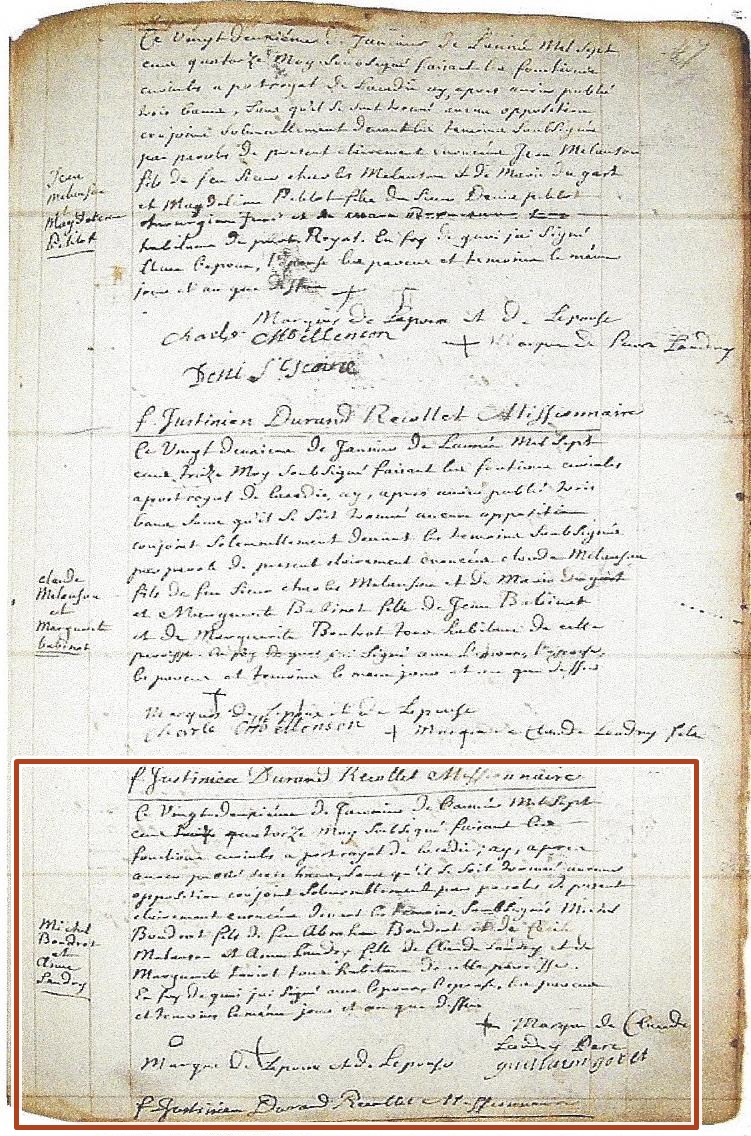 47
Ce Vingt deuxiéme de Janvier de Lannée Mil Sept
cens quatorze Moy Soubsigné faisant les fonctions
curiales a portroyal de Lacadie ay, apres avoir publié
trois bans, Sans qu'il Se soit trouvé aucun opposition
conjoint Solemnellement devant les temoins Soubsignés
par paroles de present clairement enoncées Jean Melanson
fils de feu Sieur charles Melanson et de Marie du gast
et Magdelaine Petitot fille du Sieur Denis petitot
chirurgien Juré et de
habitans de port Royal. En foy de quoi jai Signé
avec Lepoux, l'Epouse les parens et temoins le même
jour et an que dessus
Jean
Melanson
et
Magdelaine
Petitot
Marques de Lepoux et de Lepouse
Charle Mellenson
Marque de Pierre Landry
Deni
f. Justinien Durand Recollet Missionnaire
Ce Vingt deuxieme de Janvier de Lannée Mil Sept
cens treize Moy Soubsigné faisant les fontions curiales
a port royal de lacadie, ay, aprés avoir publié trois
bans Sans qu'il Se Soit trouvé aucun opposition
conjoint Solemnellement devant les temoins Soubsignés
par parole de present clairement enoncées claude Melanson
fils de feu Sieur charles Melanson et de Marie dugast
et Marguerite Babinot fille de Jean Babinot
et de Marguerite Boutrot tous habitans de cette
paroisse. En foy de quoi jai Signé avec Lepoux, l'epouse,
les parens et temoins le meme jour et an que dessus
claude
Melanson
et
Marguerite
babinot
Marques de Lepoux et de Lepouse
Charle Mellenson
Marque de Claude Landry fils
f. Justinien Durand Recollet Missionnaire
Ce Vingt deuxiéme de Janvier de Lannée Mil Sept
cens treize quatorze Moy Soubsigné faisant les
fonctions curiales a port royal de lacadie, ay, apres
avoir publié trois bans, Sans qu'il Se Soit trouvé aucune
opposition conjoint Solemnellement par paroles de present
clairement enoncées devant les temoins Soubsignés Michel
Boudrot fils de feu Abraham Boudrot et de Cecile
Melanson et Anne Landry fille de Claude Landry et de
Marguerite Teriot tous habitans de cette paroisse.
En foy de quoi jai Signé avec Lepoux, Lepouse, les parens
et temoins le même jour et an que dessus
Michel
Boudrot
et
Anne
Landry
Marque de Claude
Landry Pere
Marque de Lepoux et de Lepouse
guillaume
f. Justinien Durand Recollet Missionnaire